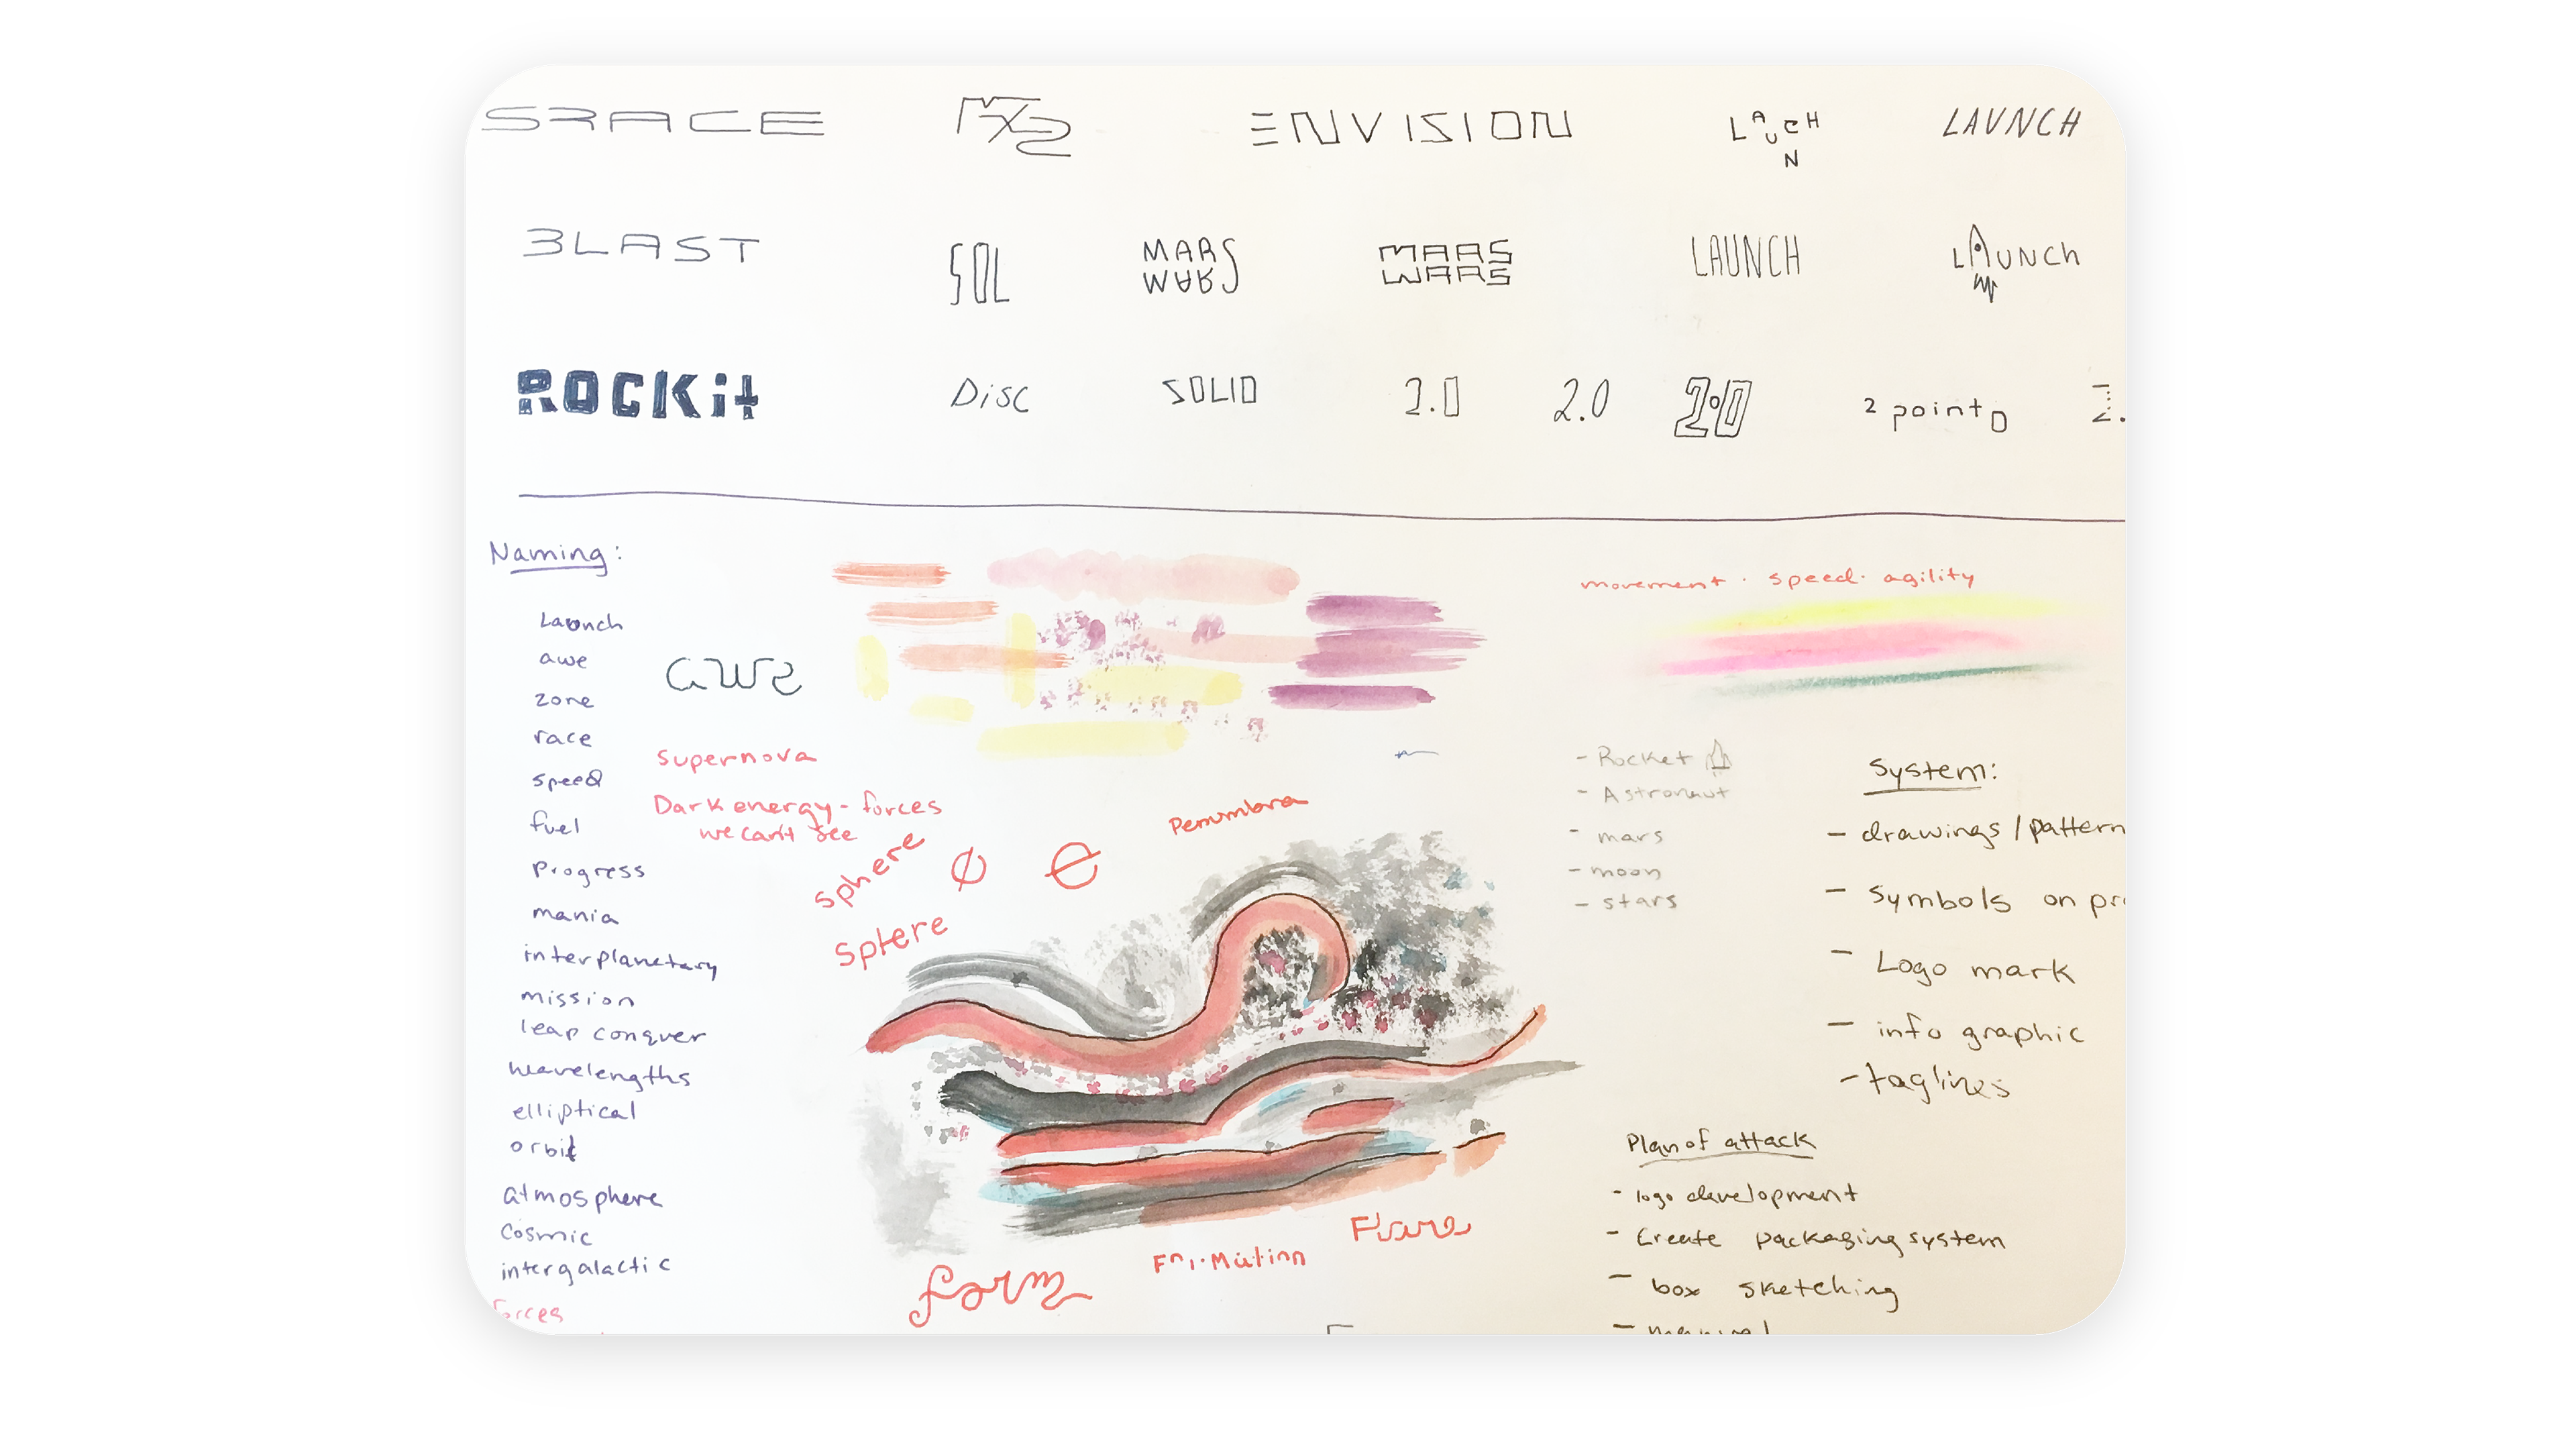 SPACE
ENVISION
LAUNCH
LAUNCH
BLAST
SOL
MARS
WARS
MARS
WARS
LAUNCH
LAUNCH
ROCKit
Disc
SOLID
2.0
2.0
2.0
2 point 0
2.
Naming:
Launch
awe
zone
race
speed
fuel
Progress
mania
interplanetary
mission
leap conquer
wavelengths
elliptical
orbit
atmosphere
Cosmic
intergalactic
forces
awe
supernova
Dark energy - forces
we can't see
sphere
sphere
Penumbra
form
Flare
movement · speed · agility
- Rocket
- Astronaut
- mars
- moon
- stars
System:
- drawings / pattern
- Symbols on pr
- Logo mark
- info graphic
- taglines
Plan of attack
- logo development
- Create packaging system
- box sketching